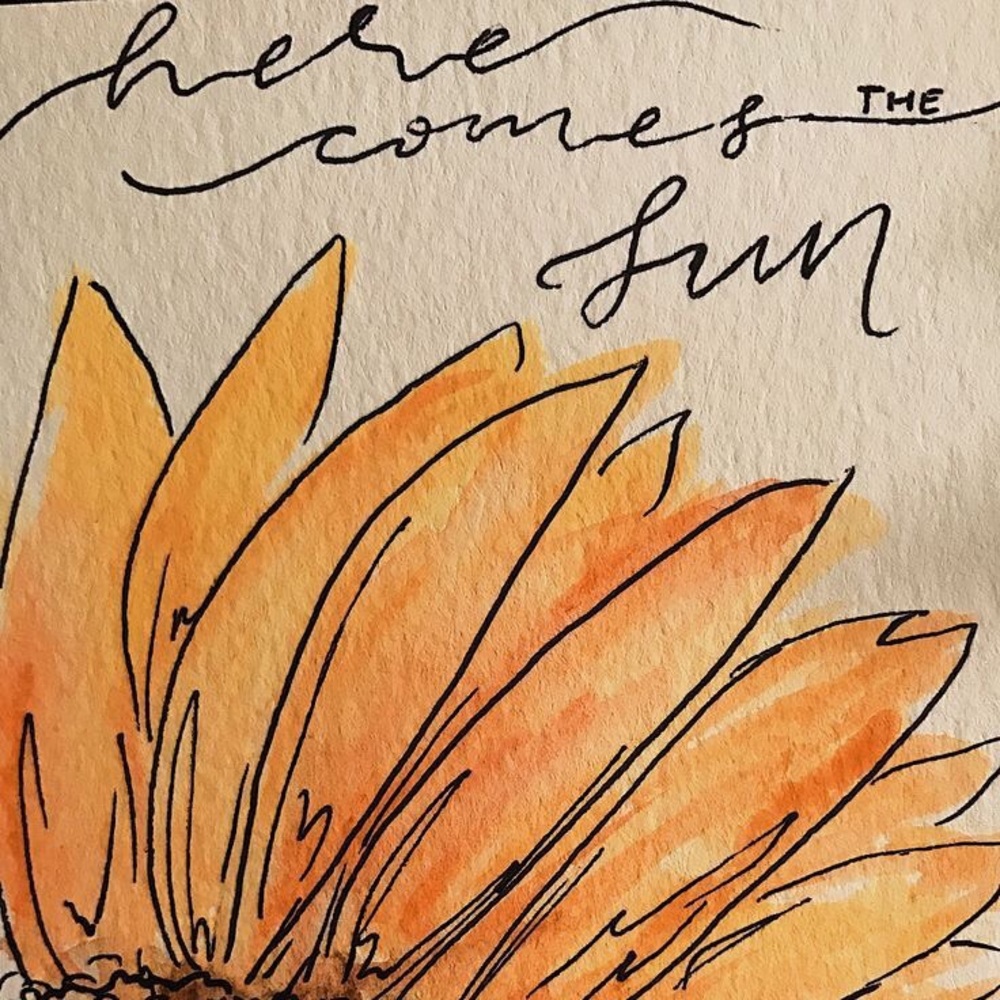 here
comes THE
sun